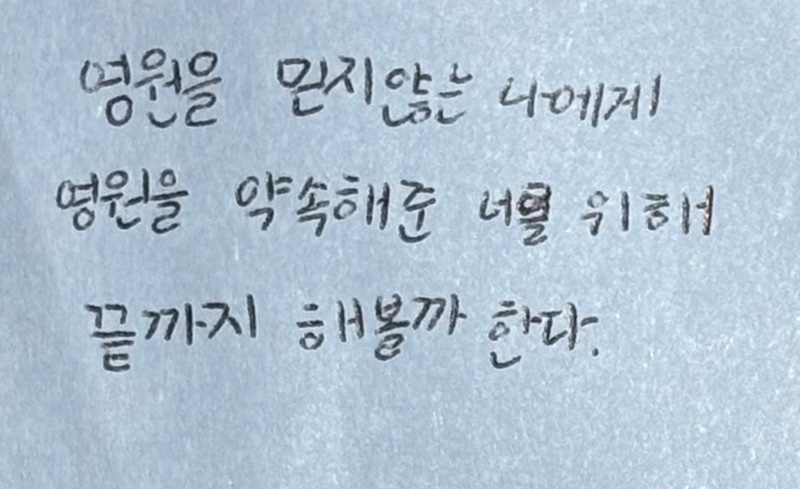 영원을 믿지않는 나에게
영원을 약속해준 너를 위해
끝까지 해볼까 한다.